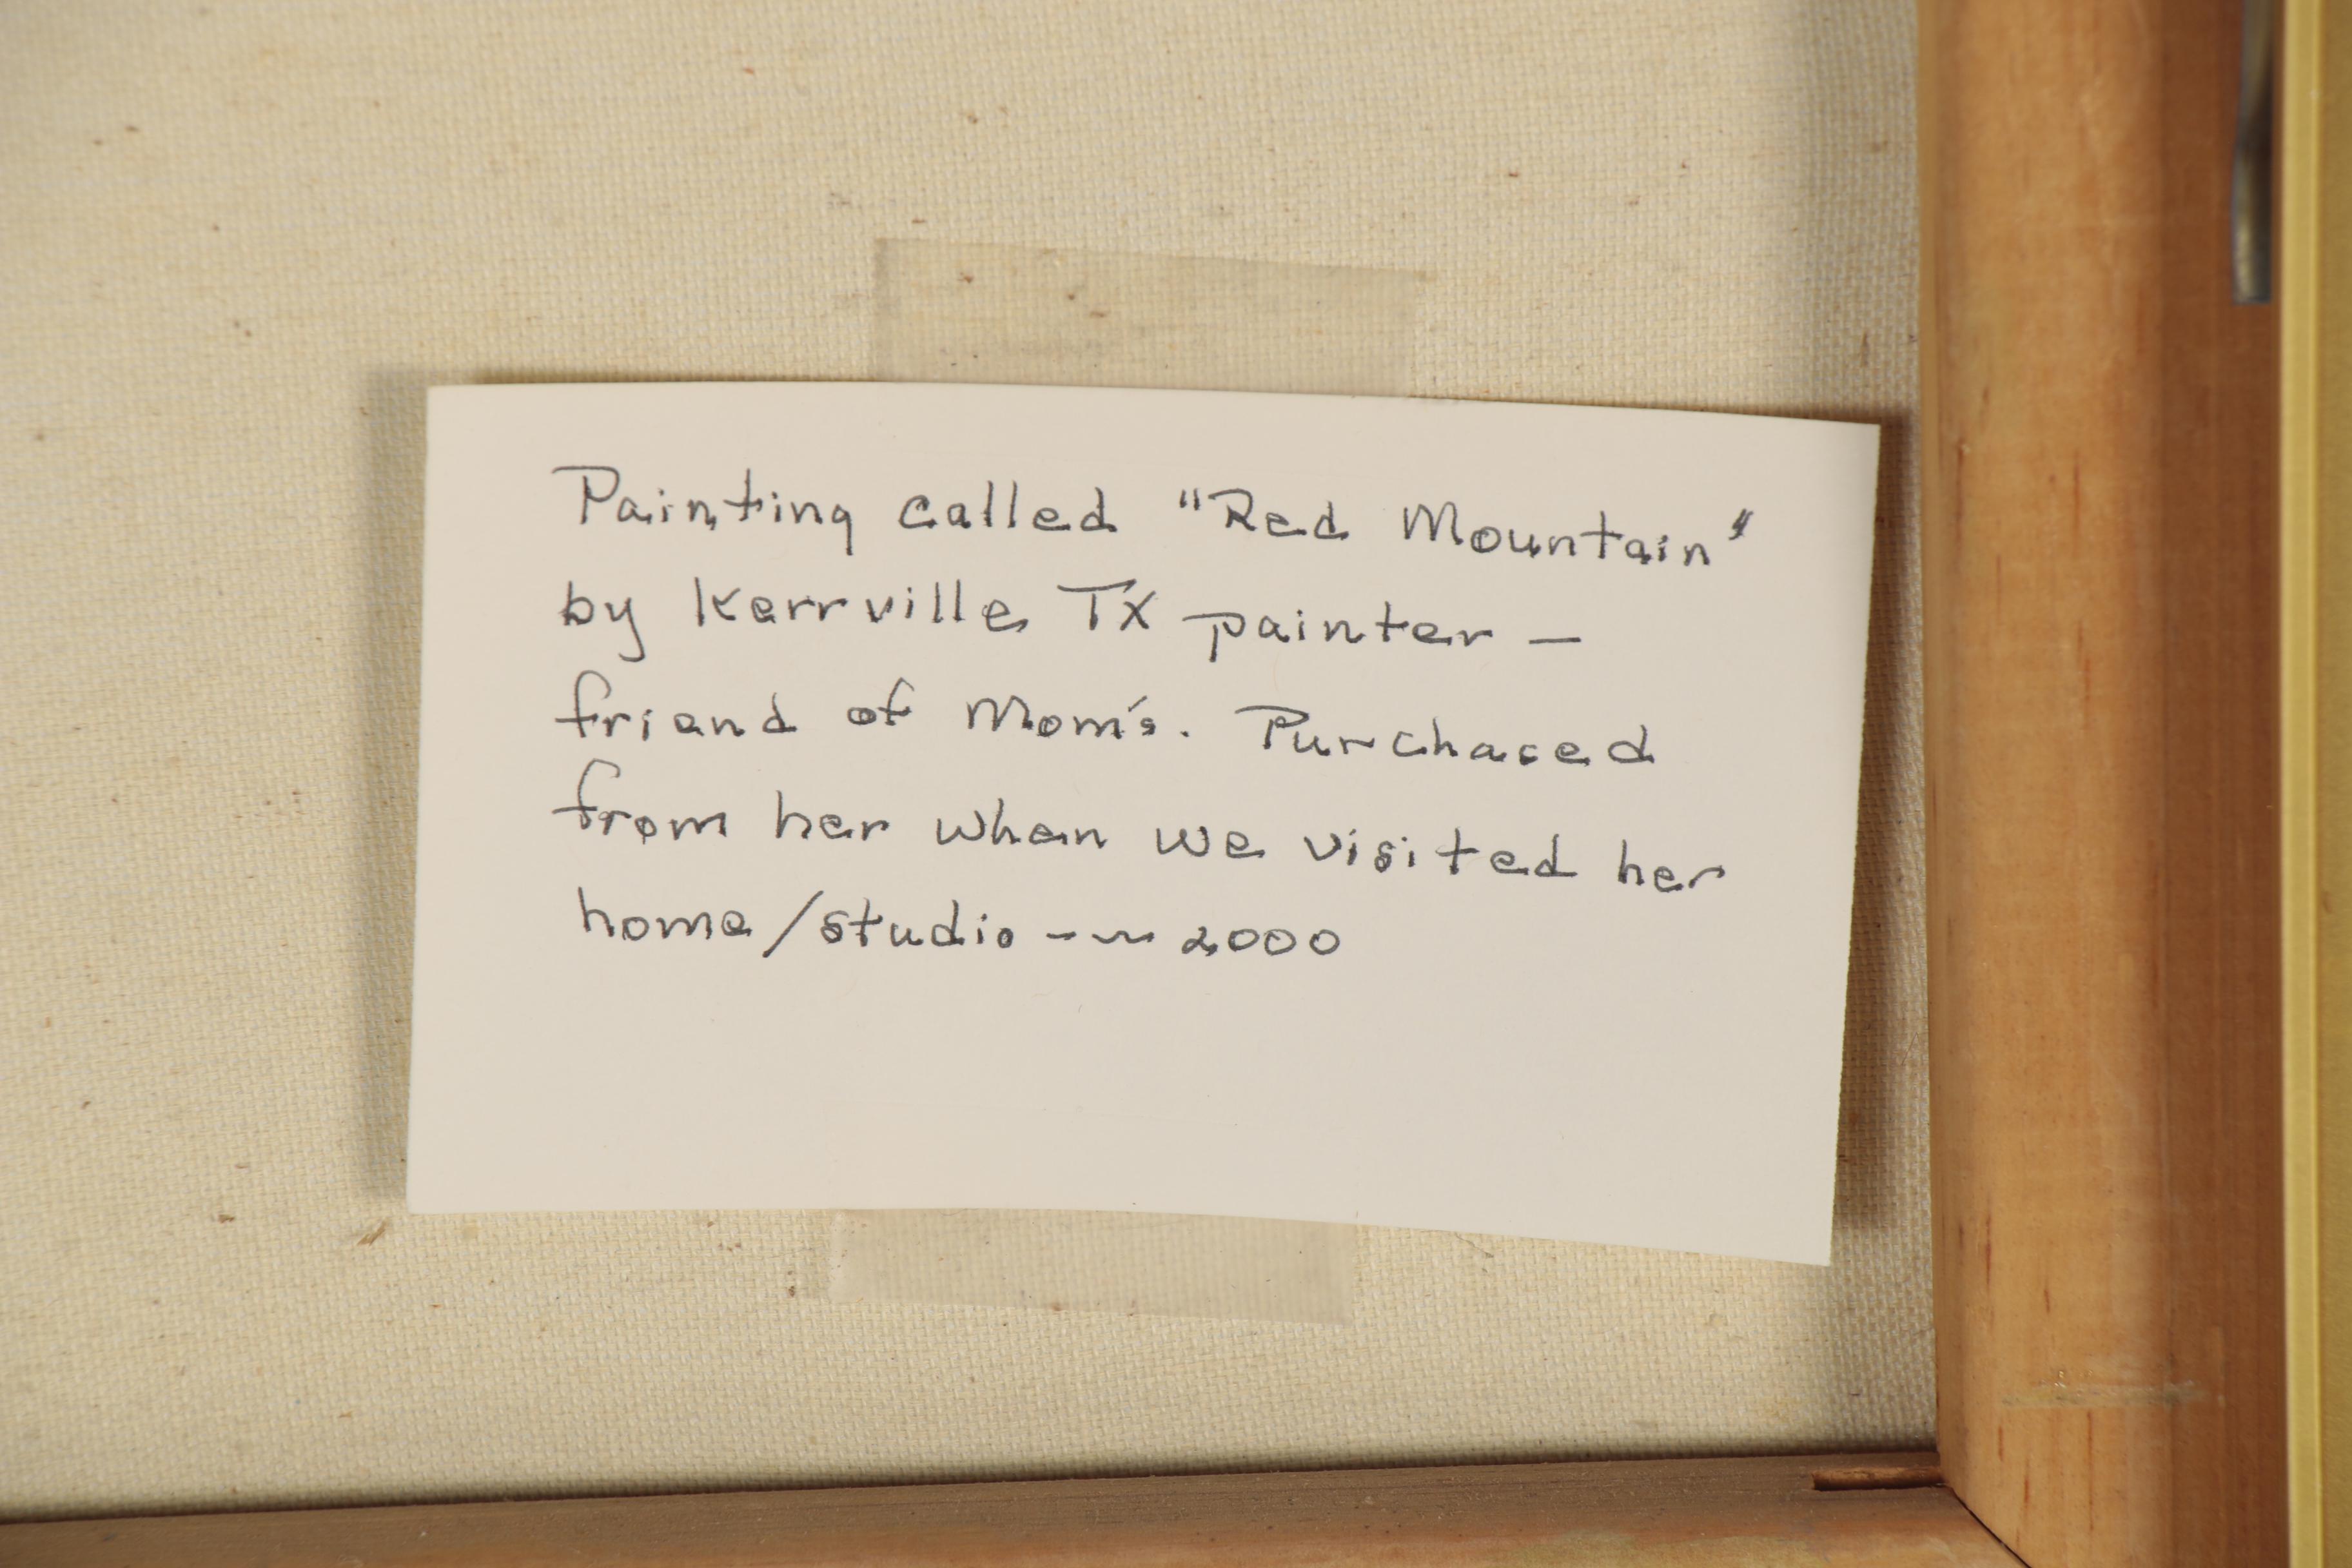 Painting called "Red Mountain"
by Kerrville TX painter –
friend of Mom's. Purchased
from her when we visited her
home/studio -~ 2000